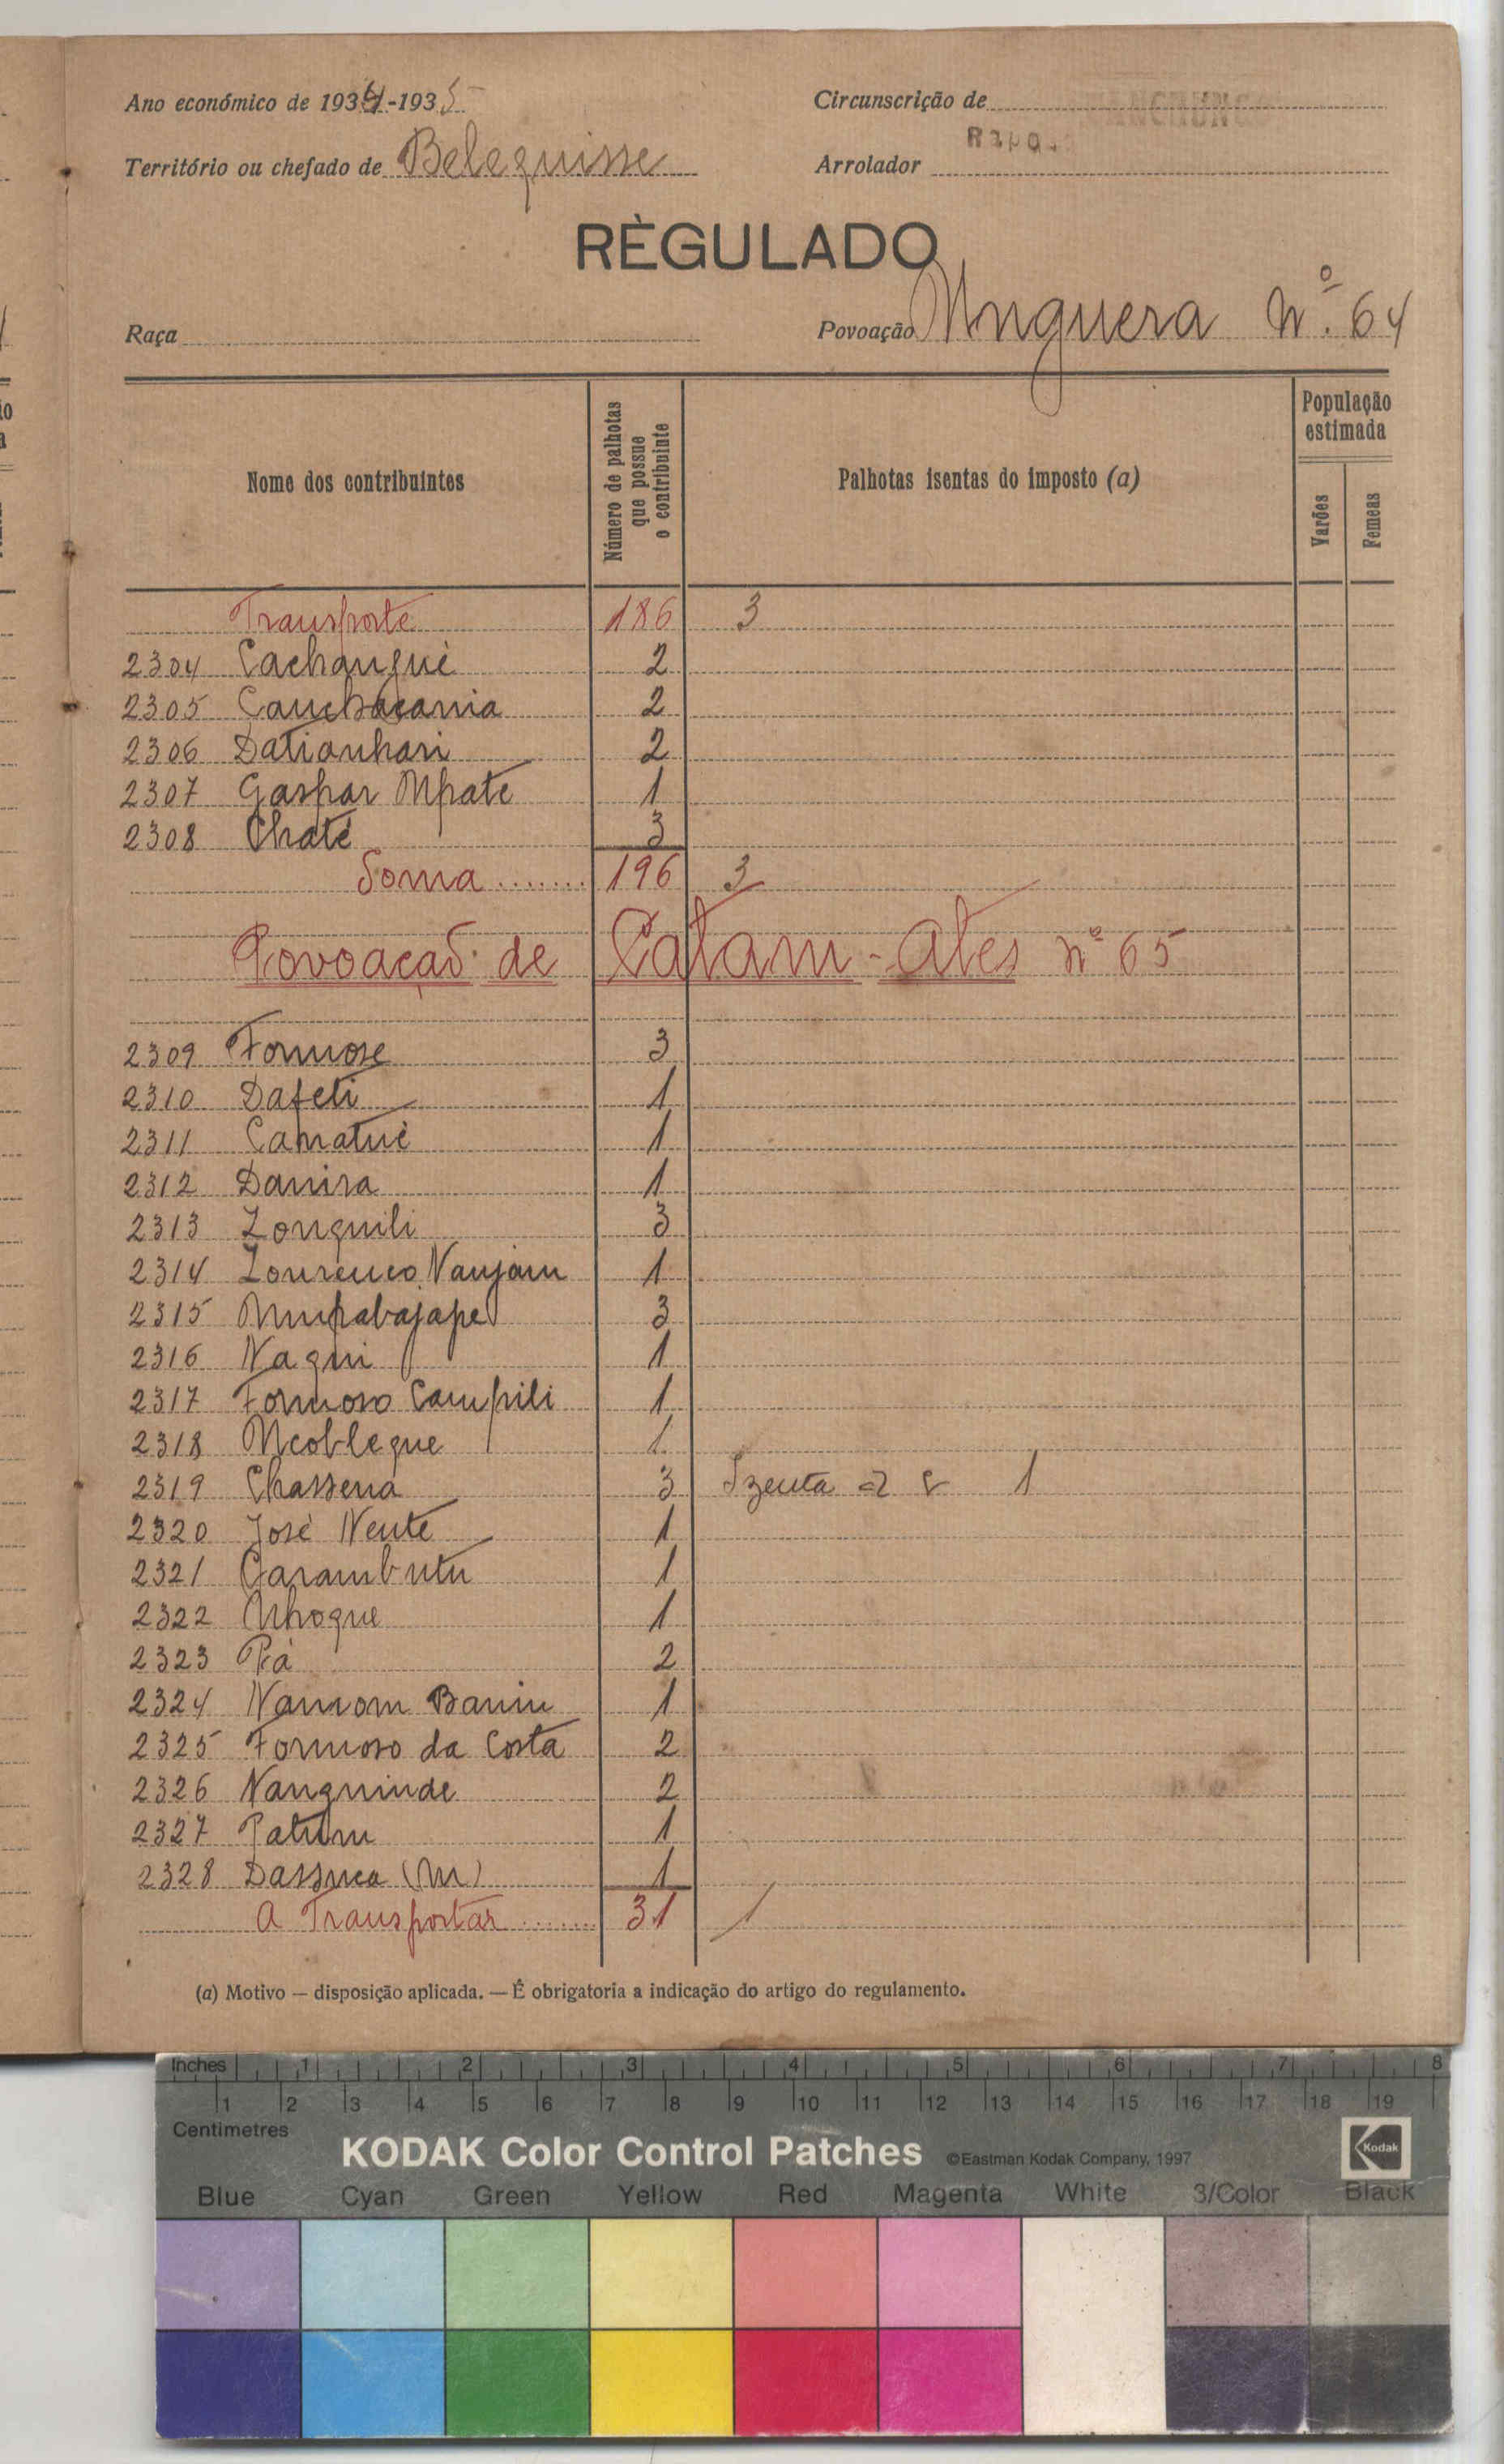 Ano económico de 1934-1935
Circunscrição de
Território ou chefado de Belequisse
Arrolador
RÈGULADO
Raça
Povoação Unguera Nº. 64
Nome dos contribuintes
Número de palhotas que possue o contribuinte
Palhotas isentas do imposto (a)
População estimada
Varões
Femeas
Transporte 186 3
2304 Cachanguè 2
2305 2
2306 Datianhari 2
2307 Gaspar Mpate 1
2308 Chaté 3
Soma ....... 196 3
Povoação de Catam-Ates nº 65
2309 Formose 3
2310 Dafeti 1
2311 Camatuè 1
2312 Danira 1
2313 Zonguili 3
2314 Lourenco Nanjam 1
2315 Mupabajape 3
2316 Naqui 1
2317 Formoso Campili 1
2318 Ncobleque 1
2319 Chassena 3 Izenta 1
2320 José Nente 1
2321 Carambutu 1
2322 Nhoque 1
2323 Pá 2
2324 Namom Banin 1
2325 Formoso da Costa 2
2326 Nanguinde 2
2327 Patum 1
2328 Dassuca (M) 1
A Transportar ....... 31 1
(a) Motivo — disposição aplicada. — É obrigatoria a indicação do artigo do regulamento.
Inches 1 2 3 4 5 6 7 8
1 2 3 4 5 6 7 8 9 10 11 12 13 14 15 16 17 18 19
Centimetres
KODAK Color Control Patches ©Eastman Kodak Company, 1997 Kodak
Blue Cyan Green Yellow Red Magenta White 3/Color Black